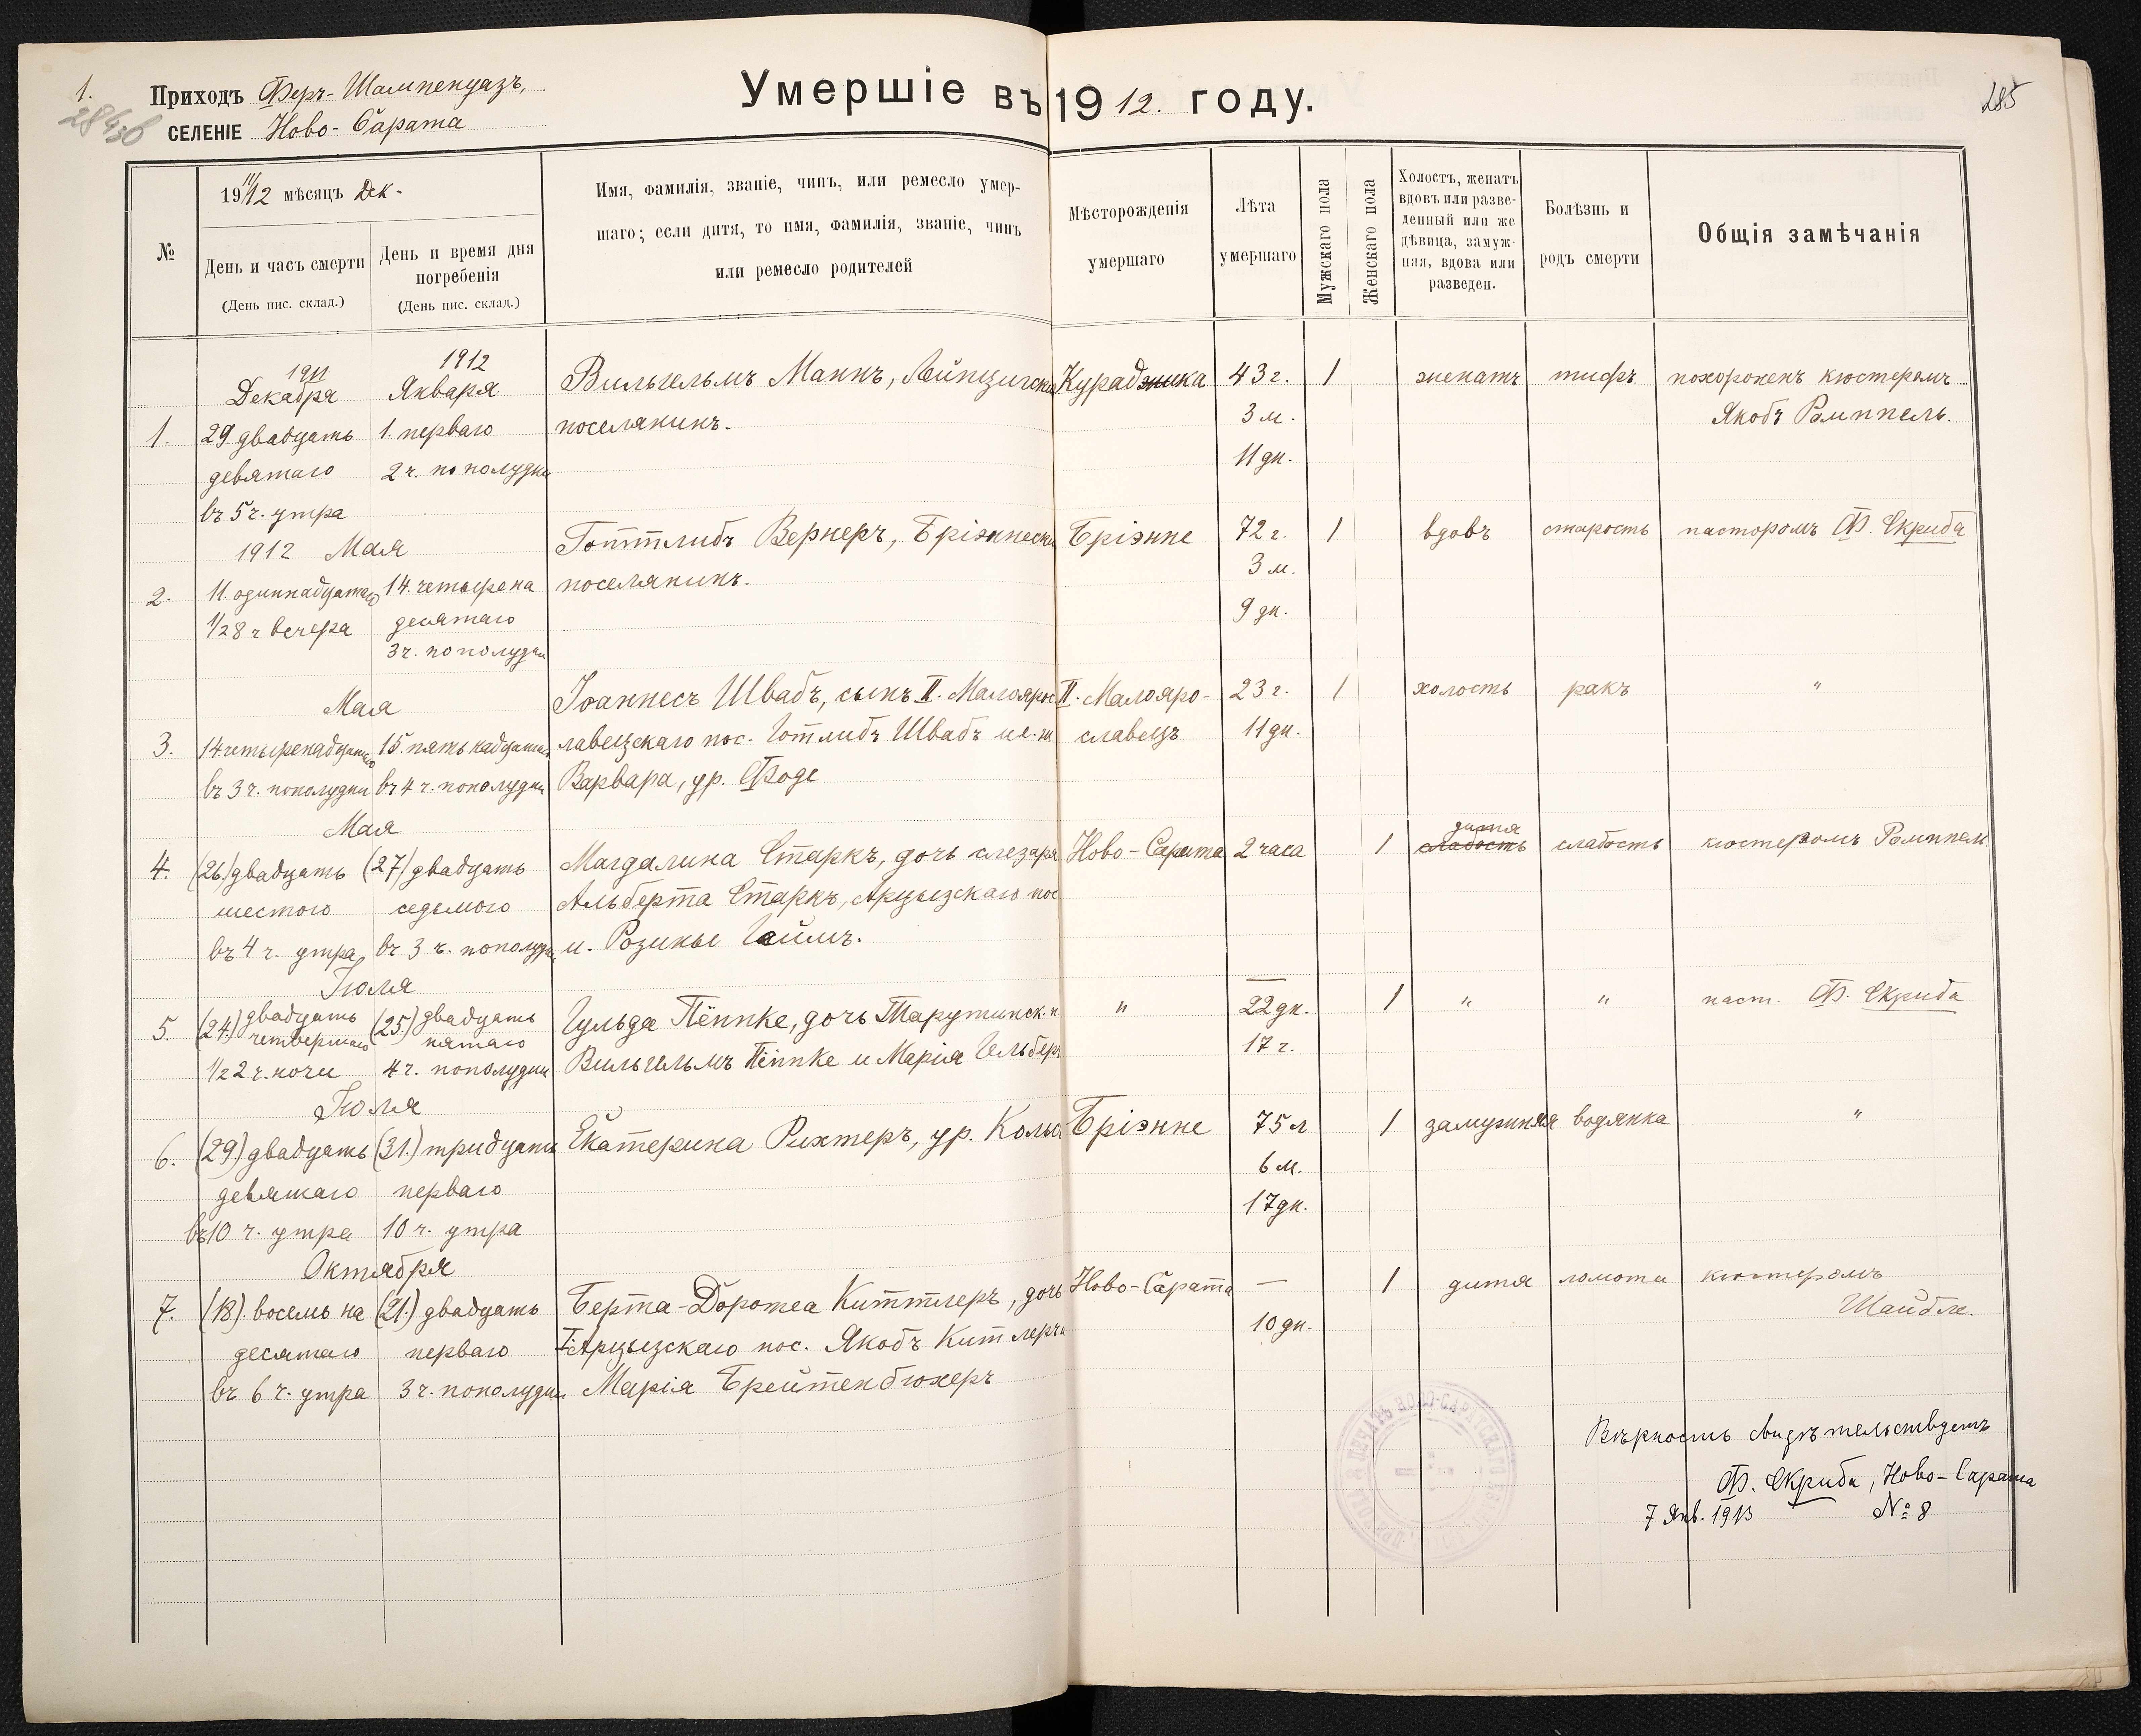 1.
Приходъ Феръ-Шампенуазъ,
селеніе Ново-Сарата
Умершіе въ 1912. году.
285
№
1911/12 мѣсяцъ Дек-
День и часъ смерти
(День пис. склад.)
День и время дня
погребенія
(День пис. склад.)
Имя, фамилія, званіе, чинъ, или ремесло умер-
шаго; если дитя, то имя, фамилія, званіе, чинъ
или ремесло родителей
Мѣсторожденія
умершаго
Лѣта
умершаго
Мужскаго пола
Женскаго пола
Холостъ, женатъ
вдовъ или разве-
денный или же
дѣвица, замуж-
няя, вдова или
разведен.
Болѣзнь и
родъ смерти
Общія замѣчанія
1911
Декабря
1912
Января
1. 29. двадцать
девятаго
въ 5 ч. утра
1. перваго
2 ч. по полудни
Вильгельмъ Маннъ, Лейпцигск
поселянинъ.
Кураджика
43 г.
3 м.
11 дн.
1
женатъ
тифъ
похороненъ кюстеромъ
Якобъ Ромппель.
1912 Мая
2. 11. одиннадцатаго
1/2 8 ч вечера
14. четырена
десятаго
3 ч. по полудни
Готтлибъ Вернеръ, Бріэннески
поселянинъ.
Бріэнне
72 г.
3 м.
9 дн.
1
вдовъ
старость
пасторомъ Ф. Скриба
Мая
3. 14 четыренадцатаго
въ 3 ч. пополудни
15. пятьнадцатаго
въ 4 ч. пополудни
Іоаннесъ Швабъ, сынъ II. Малояро
лавецскаго пос. Готлибъ Швабъ и е. ж.
Варвара, ур. Фоде
II. Малояро-
славецъ
23 г.
11 дн.
1
холость
ракъ
"
Мая
4. (26.) двадцать
шестого
въ 4 ч. утра
(27) двадцать
седьмого
въ 3 ч. пополудни
Магдалина Старкъ, дочь слезаря
Альберта Старкъ, Арцызскаго пос
и. Розинье Геймъ.
Ново-Сарата
2 часа
1
дитя
слабость
слабость
кюстеромъ Ромппель
Іюля
5. (24.) двадцать
четвертаго
1/2 2 ч. ночи
(25.) двадцать
пятаго
4 ч. пополудни
Гульда Пёппке, дочь Тарутинск. п.
Вильгельмъ Пёппке и Марія Гельбер
"
—
22 дн.
17 ч.
1
"
"
паст. Ф. Скриба
Іюля
6. (29.) двадцать
девятаго
въ 10 ч. утра
(31.) тридцать
перваго
10 ч. утра
Екатерина Рихтеръ, ур. Кольи
Бріэнне
75 л
6 м.
17 дн.
1
замужняя
водянка
"
Октября
7. (18). восемь на
десятаго
въ 6 ч. утра
(21.) двадцать
перваго
3 ч. пополудни
Берта-Доротеа Киттлеръ, дочь
I Арцызскаго пос. Якобъ Китлеръ и
Марія Брейтенбюхеръ
Ново-Сарата
—
10 дн.
1
дитя
ломота
кюстеромъ
Шайбле.
Вѣрность свидѣтельствуетъ
Ф. Скриба, Ново-Сарата
7 Янв. 1913 № 8